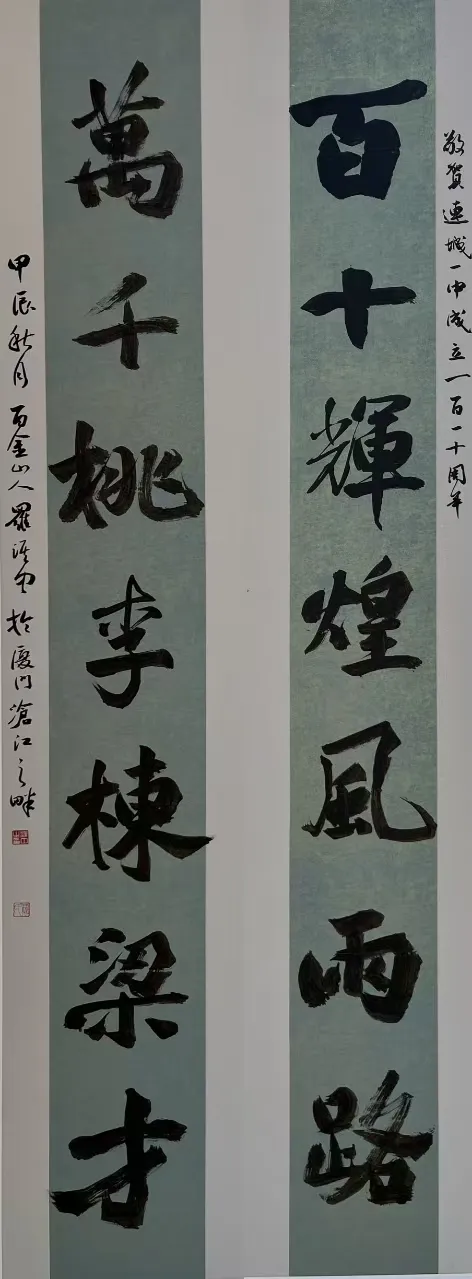 敬賀連城一中成立一百一十周年
百十輝煌風雨路
萬千桃李棟梁才
甲辰秋月百金山人羅於厦门滄江之畔